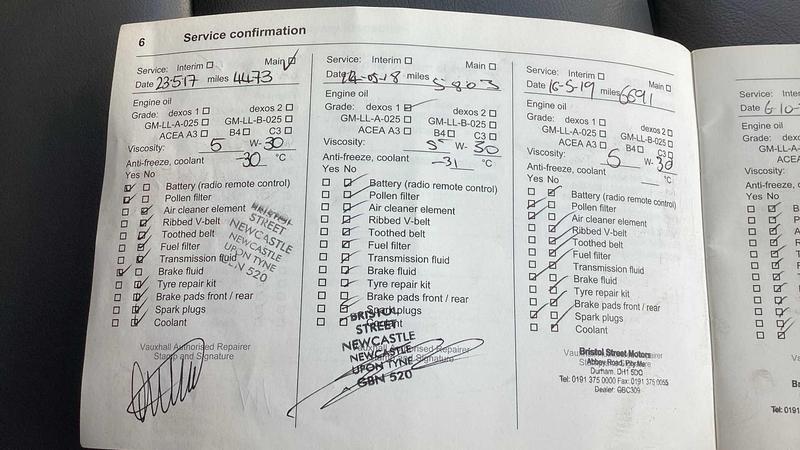 6 Service confirmation
Service: Interim Main
Date 23-5-17 miles 4473
Engine oil
Grade: dexos 1 dexos 2
GM-LL-A-025 GM-LL-B-025
ACEA A3 B4 C3
Viscosity: 5 W- 30
Anti-freeze, coolant -30 °C
Yes No
Battery (radio remote control)
Pollen filter
Air cleaner element
Ribbed V-belt
Toothed belt
Fuel filter
Transmission fluid
Brake fluid
Tyre repair kit
Brake pads front / rear
Spark plugs
Coolant
BRISTOL
STREET
NEWCASTLE
NEWCASTLE
UPON TYNE
GBN 520
Vauxhall Authorised Repairer
Stamp and Signature
Service: Interim Main
Date 24-05-18 miles 5803
Engine oil
Grade: dexos 1 dexos 2
GM-LL-A-025 GM-LL-B-025
ACEA A3 B4 C3
Viscosity: 5 W- 30
Anti-freeze, coolant -31 °C
Yes No
Battery (radio remote control)
Pollen filter
Air cleaner element
Ribbed V-belt
Toothed belt
Fuel filter
Transmission fluid
Brake fluid
Tyre repair kit
Brake pads front / rear
Spark plugs
Coolant
BRISTOL
STREET
NEWCASTLE
NEWCASTLE
UPON TYNE
GBN 520
Vauxhall Authorised Repairer
Stamp and Signature
Service: Interim Main
Date 16-5-19 miles 6691
Engine oil
Grade: dexos 1 dexos 2
GM-LL-A-025 GM-LL-B-025
ACEA A3 B4 C3
Viscosity: 5 W- 30
Anti-freeze, coolant °C
Yes No
Battery (radio remote control)
Pollen filter
Air cleaner element
Ribbed V-belt
Toothed belt
Fuel filter
Transmission fluid
Brake fluid
Tyre repair kit
Brake pads front / rear
Spark plugs
Coolant
Bristol Street Motors
Abbey Road, Pity Me
Durham. DH1 5DO
Tel: 0191 375 0000 Fax: 0191 375 0055
Dealer: GBC309
Service: Inter
Date 6-10-
Engine oil
Grade: d
GM-LL-A
ACEA
Viscosity:
Anti-freeze,
Yes No
B
P
A
R
T
F
T
B
T
B
S
C
Tel: 019